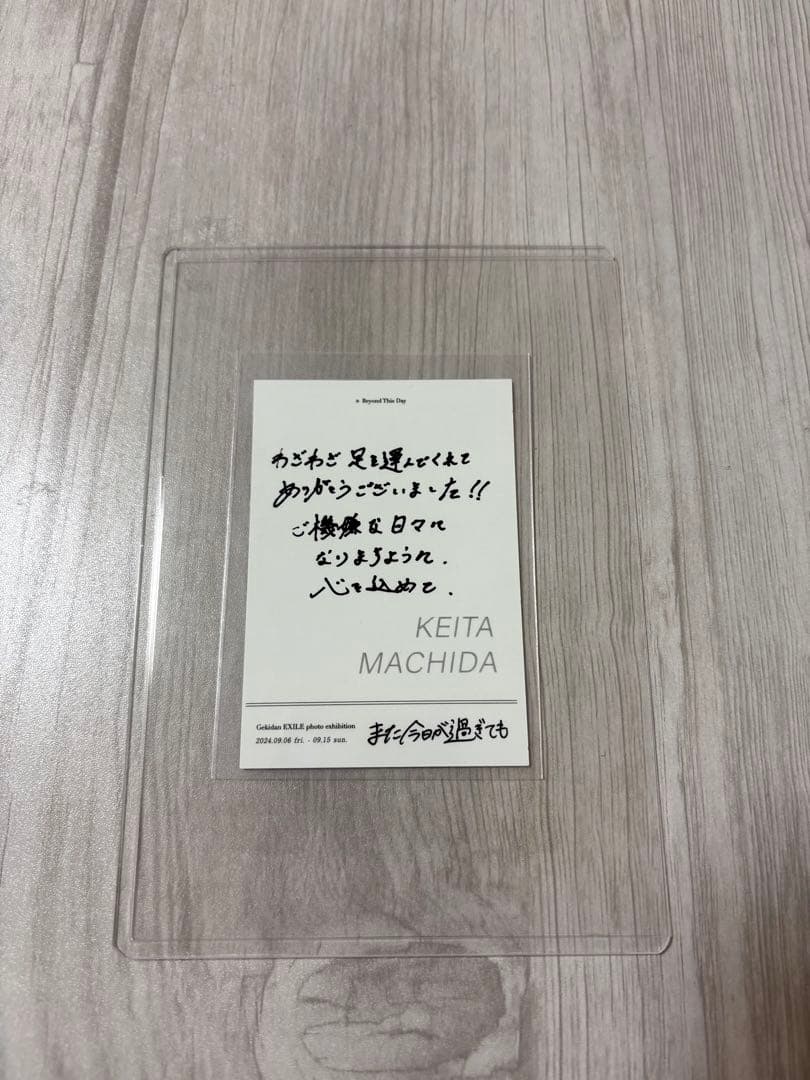 » Beyond This Day
わざわざ 足を運んでくれて
ありがとうございました!!
ご機嫌な日々に
なりますように.
心を込めて.
KEITA
MACHIDA
Gekidan EXILE photo exhibition
2024.09.06 fri. - 09.15 sun.
また今日が過ぎても